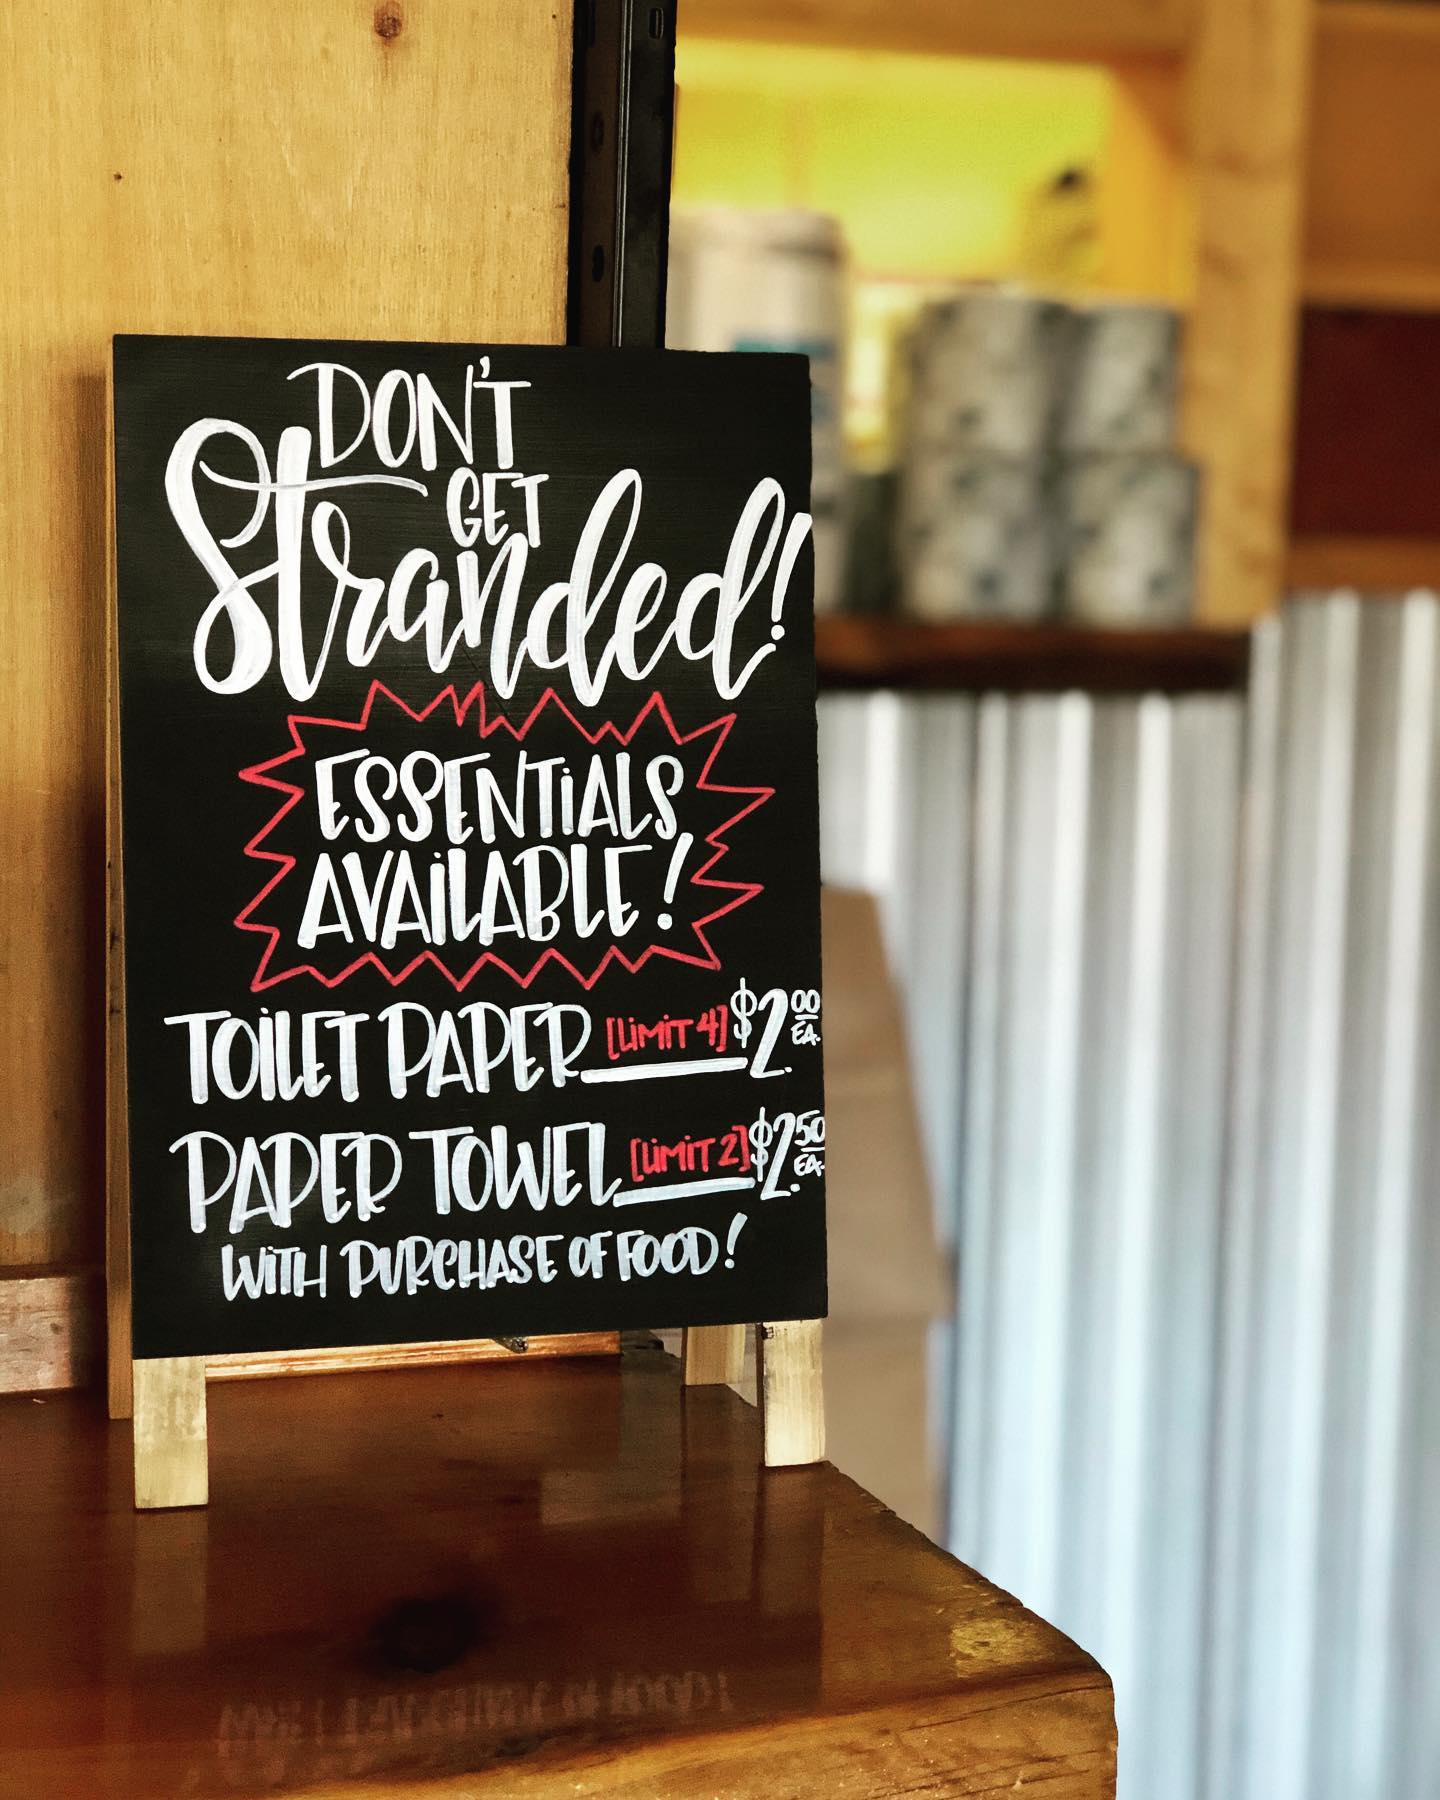 DON'T
GET
Stranded!
ESSENTIALS
AVAILABLE!
TOILET PAPER [LIMIT 4] $2.00 EA.
PAPER TOWEL [LIMIT 2] $2.50 EA.
WITH PURCHASE OF FOOD!